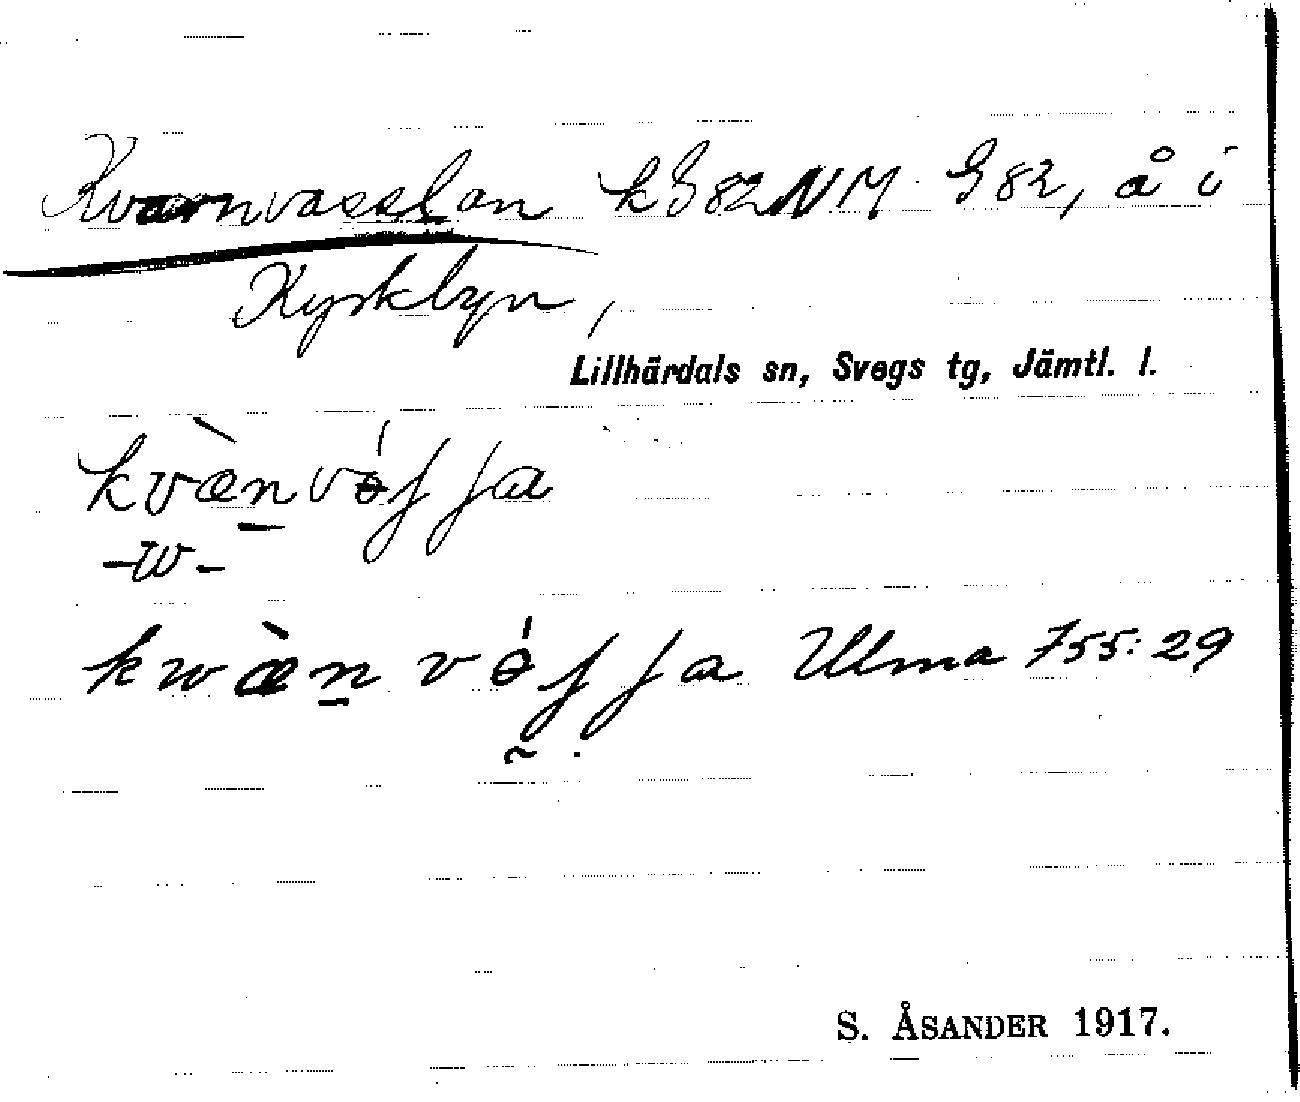 Kvarnvasslan k G82NV G82, å i
Kyrkbyn,
Lillhärdals sn, Svegs tg, Jämtl. l.
kvæ̀n̲vɵ́ʃʃa
-w-
kwæ̀n̲vɵ́ʃʃa Ulma 755:29
S. ÅSANDER 1917.